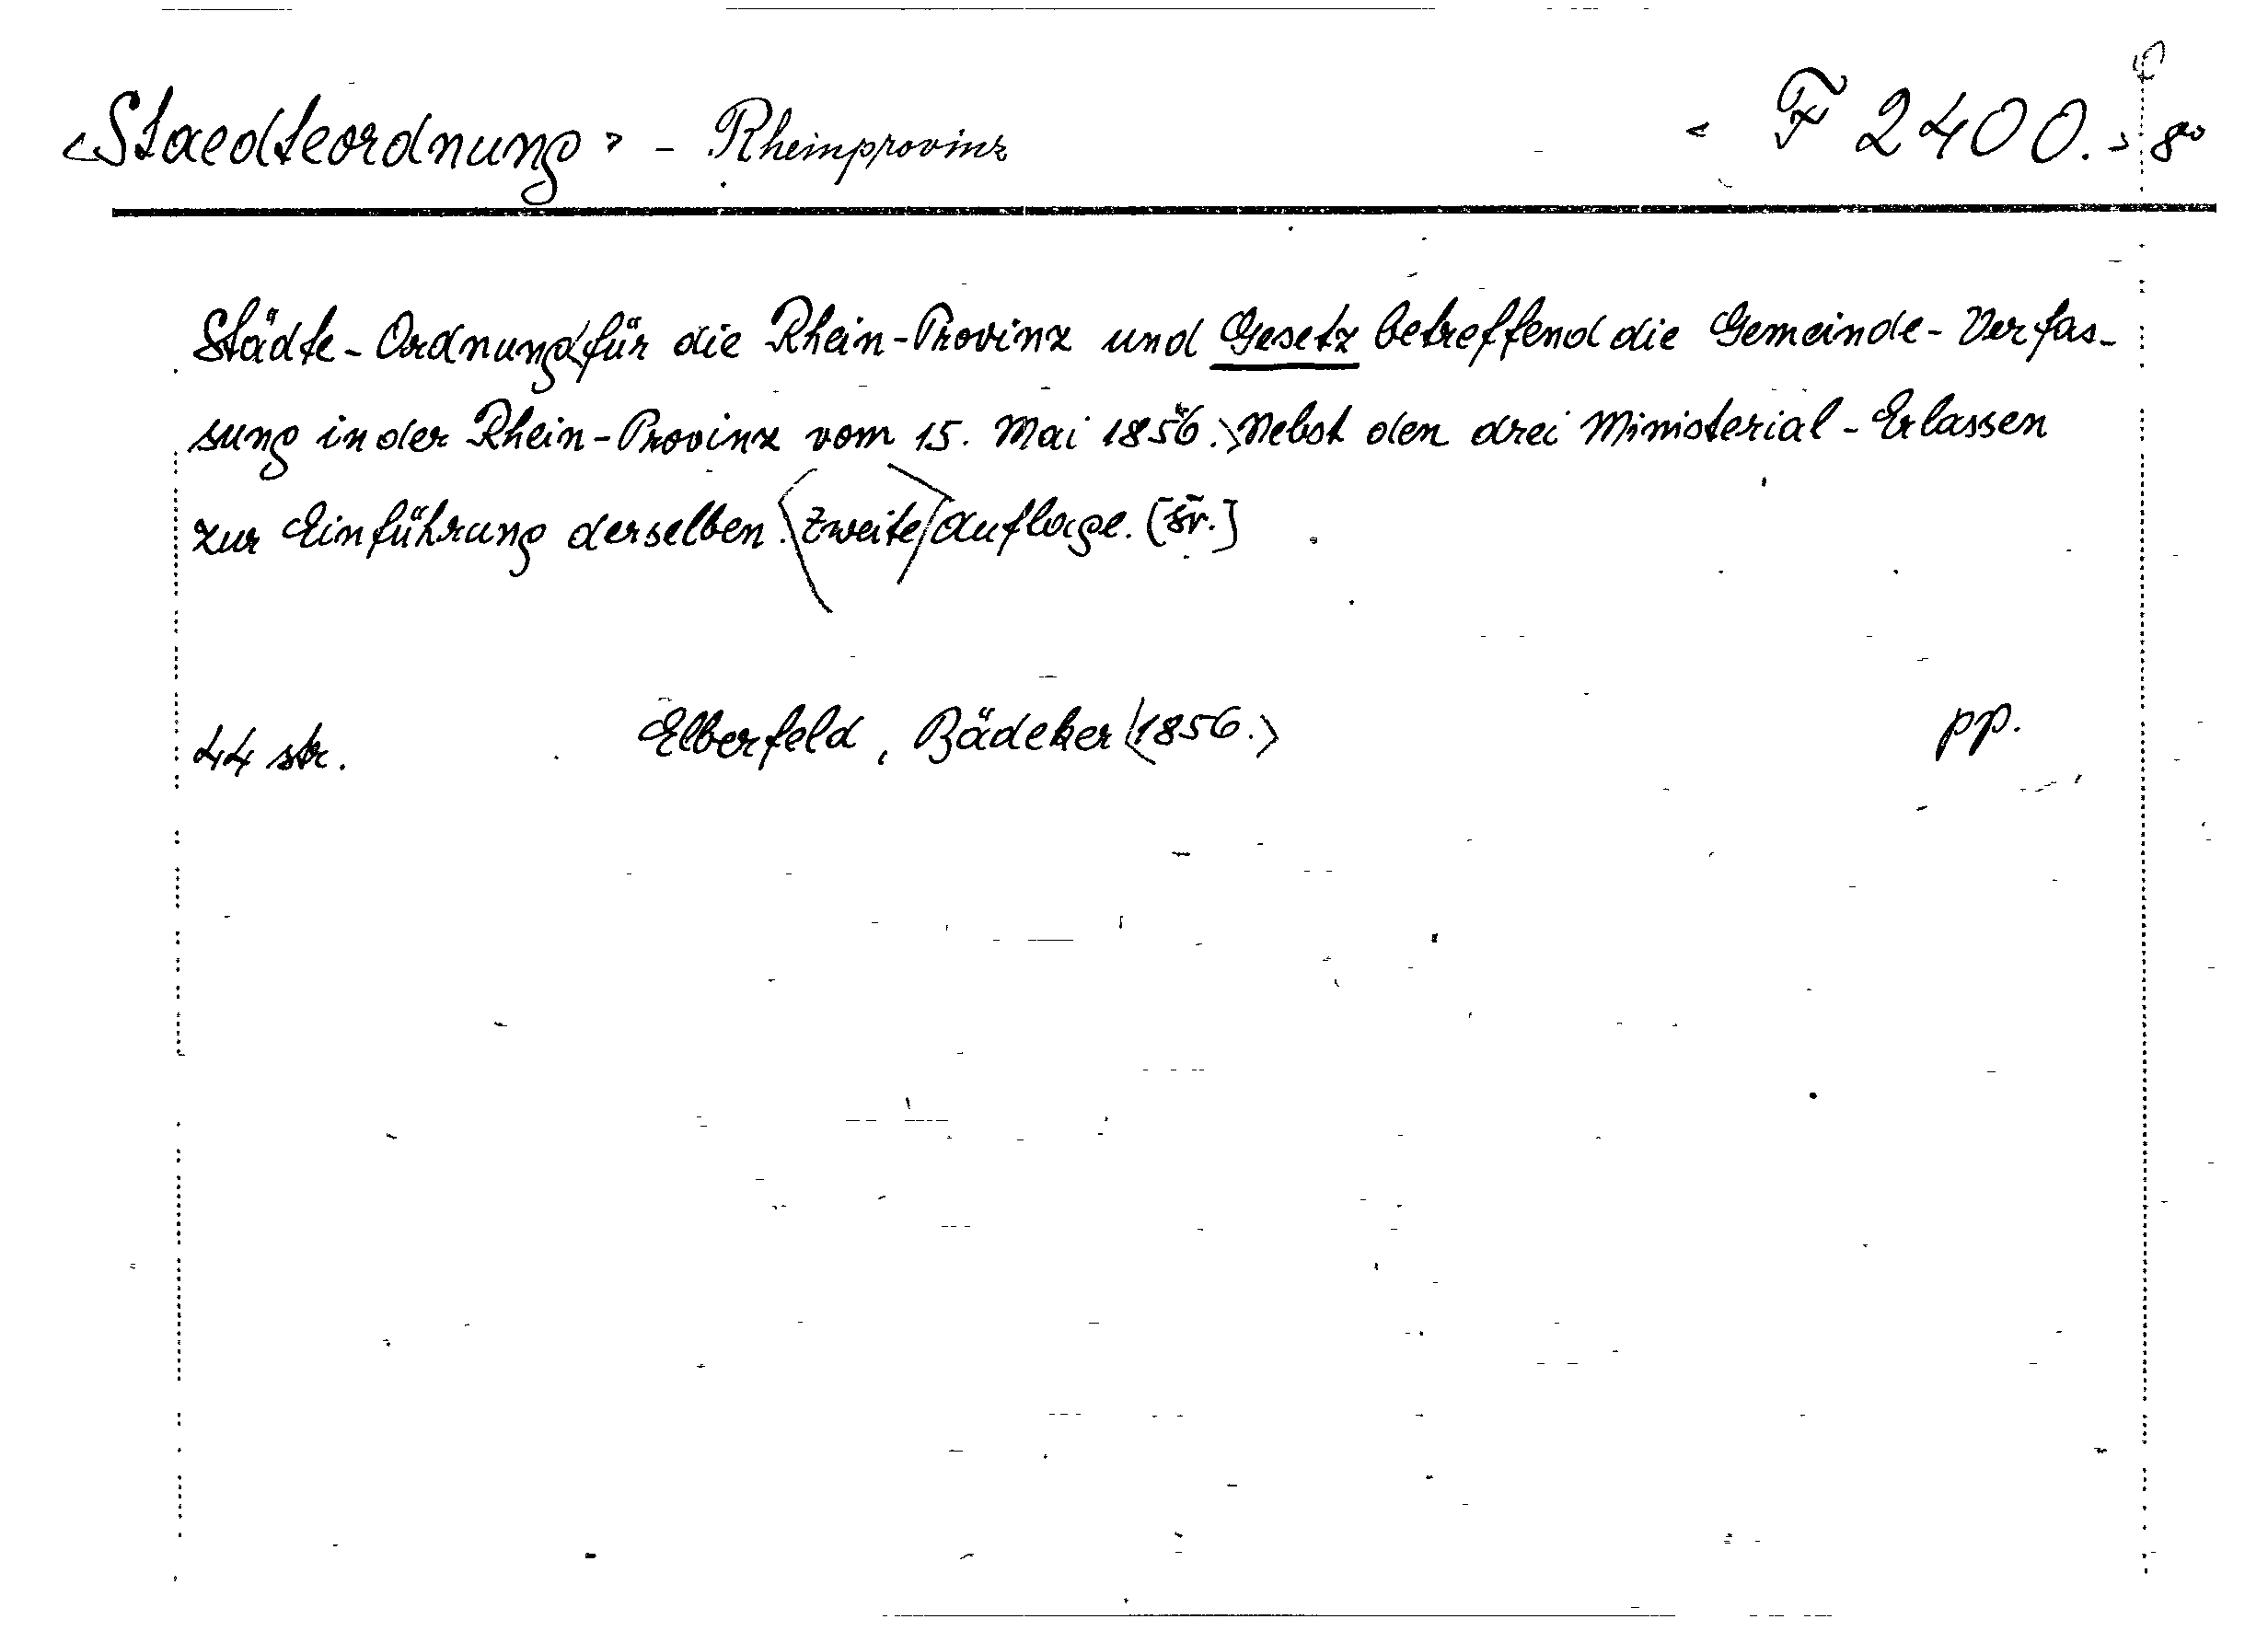 <Staedteordnung> - Rheinprovinz <F 2400.> 8°
Städte-Ordnung <für die Rhein-Provinz und Gesetz betreffend die Gemeinde-Verfas-
sung in der Rhein-Provinz vom 15. Mai 1856.> Nebst den drei Ministerial-Erlassen
zur Einführung derselben. <Zweite> Auflage. [šv.]
44 str. Elberfeld, Bädeker <1856.> pp.